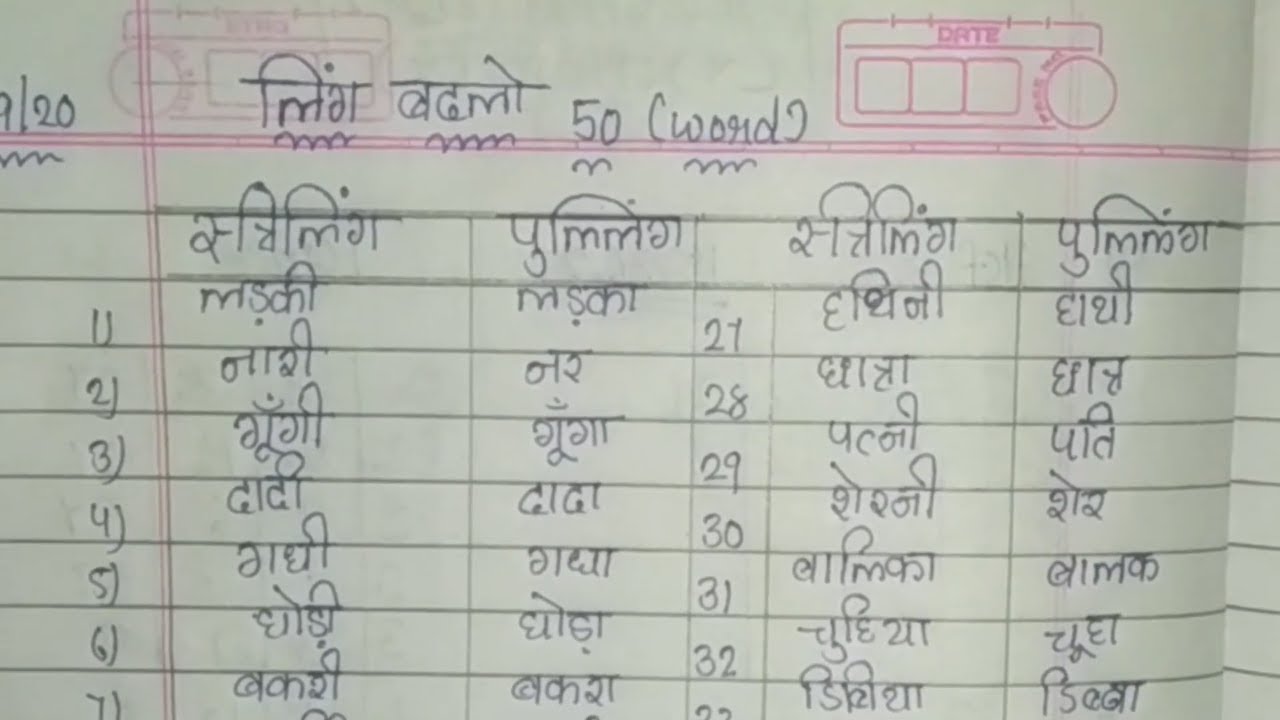 DATE
9/20 लिंग बदलो 50 (word)
स्त्रिलिंग पुल्लिंग स्त्रिलिंग पुल्लिंग
1) लड़की लड़का 27 हथिनी हाथी
2) नारी नर 28 छात्रा छात्र
3) गूँगी गूँगा 29 पत्नी पति
4) दादी दादा 30 शेरनी शेर
5) गधी गधा 31 बालिका बालक
6) घोड़ी घोड़ा 32 चुहिया चूहा
7) बकरी बकरा 33 डिबिया डिब्बा